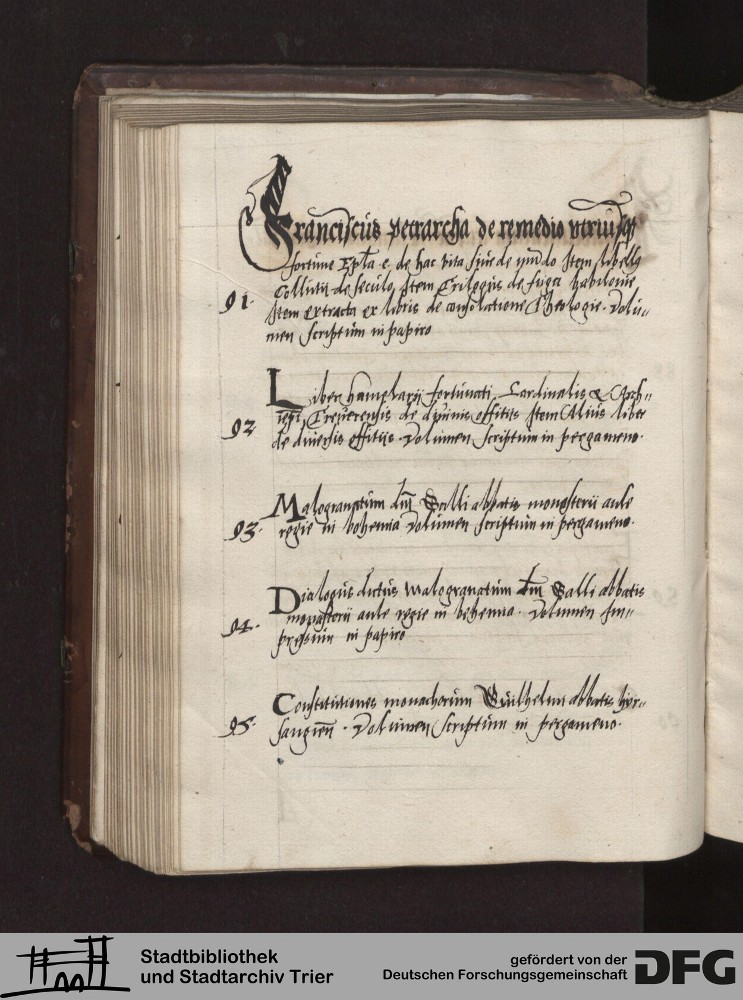 Franciscus petrarcha de remedio vtriusq3
fortune Epl'a e. de hac vita siue de mũdo Item libellus
Collutii de seculo Item Trilogus de fuga babilonie
91. Item extracta ex libris de consolatione Theologie. Volu=
men scriptum in papiro
Liber hamplarii fortunati Cardinalis & Arch=
iepĩ Treuerensis de diuinis officiis Item Alius liber
92 de diuersis officiis. Volumen scriptum in pergameno.
Malogranatum dñi Galli abbatis monasterii aule
93. regie in bohemia Volumen scriptum in pergameno.
Dialogus dictus Malogranatum dñi Galli abbatis
monasterii aule regie in bohemia. Volumen im=
94. pressum in papiro
Constitutiones monachorum Guilhelmi abbatis hyr=
95. saugien̄. Volumen scriptum in pergameno.
Stadtbibliothek
und Stadtarchiv Trier
gefördert von der
Deutschen Forschungsgemeinschaft
DFG